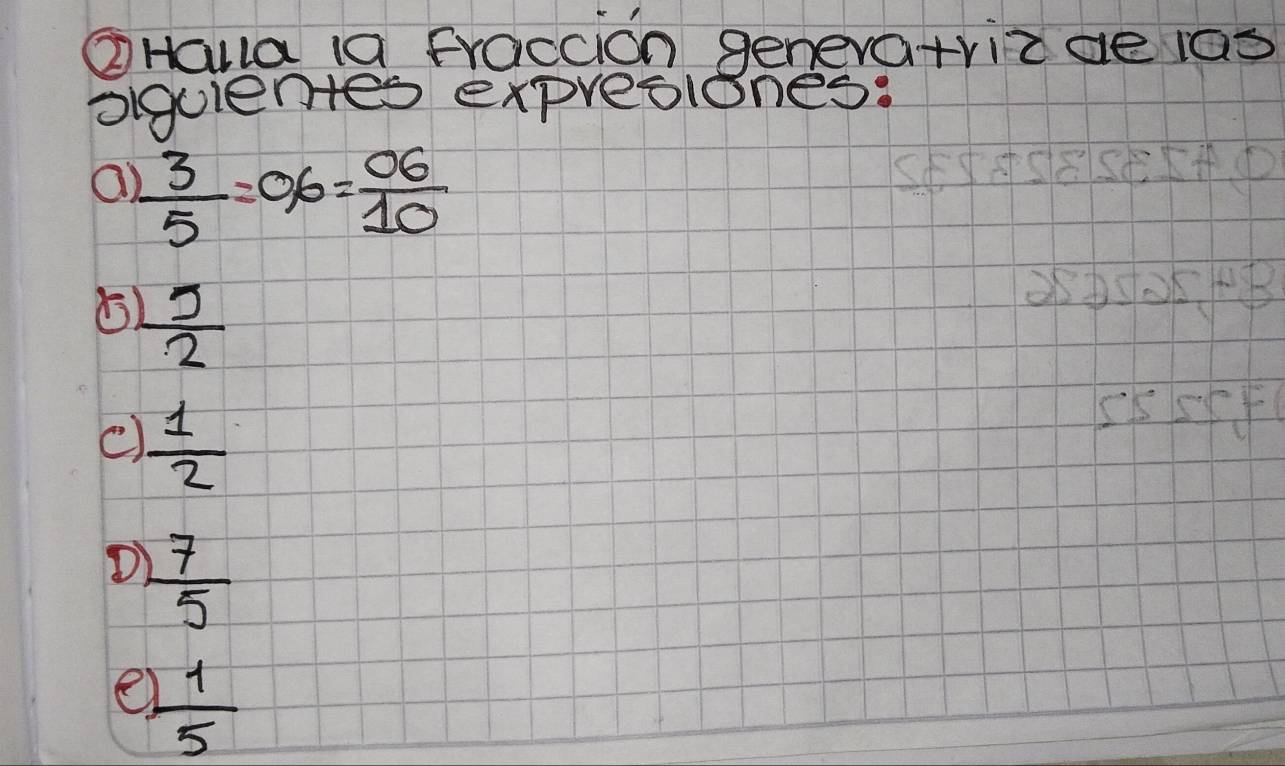 ② Halla la Fracción generatriz de las
siguientes expresiones:
a) 3/5 = 0,6 = 06/10
b) 5/2
c) 1/2
D) 7/5
e) 1/5